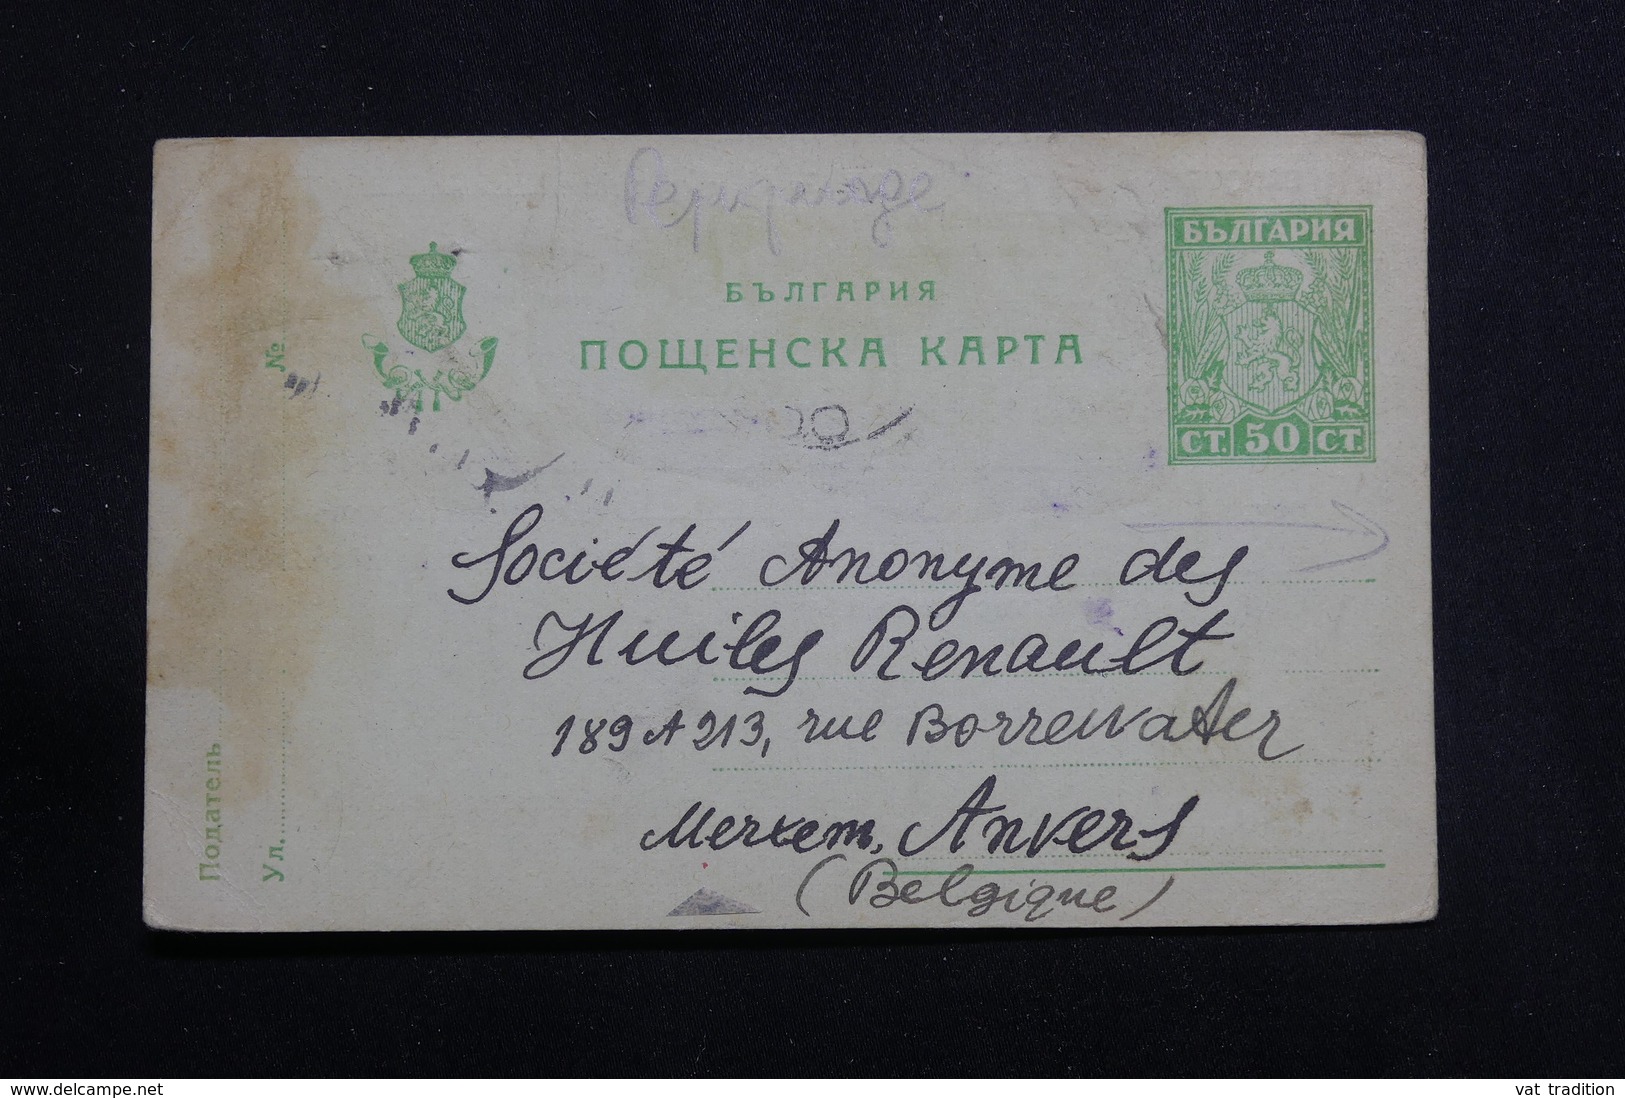 Repiquage
БЪЛГАРИЯ
БЪЛГАРИЯ
ПОЩЕНСКА КАРТА
СТ. 50 СТ.
№
Податель
Ул.
Société Anonyme des
Huiles Renault
189 A 213, rue Borrewater
Merxem, Anvers
(Belgique)
© delcampe.net
vat_tradition